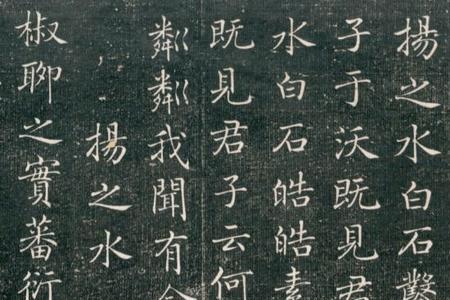 揚之水白石鑿
子于沃既見君
水白石皓皓素
既見君子云何
粼粼我聞有
揚之水
椒聊之實蕃衍